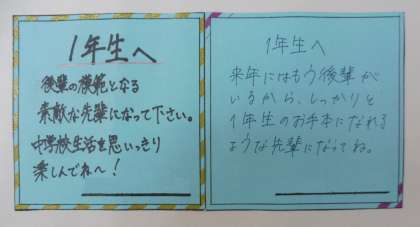 1年生へ
後輩の模範となる
素敵な先輩になって下さい。
中学校生活を思いっきり
楽しんでね〜!
1年生へ
来年にはもう後輩が
いるから、しっかりと
1年生のお手本になれる
ような先輩になってね。